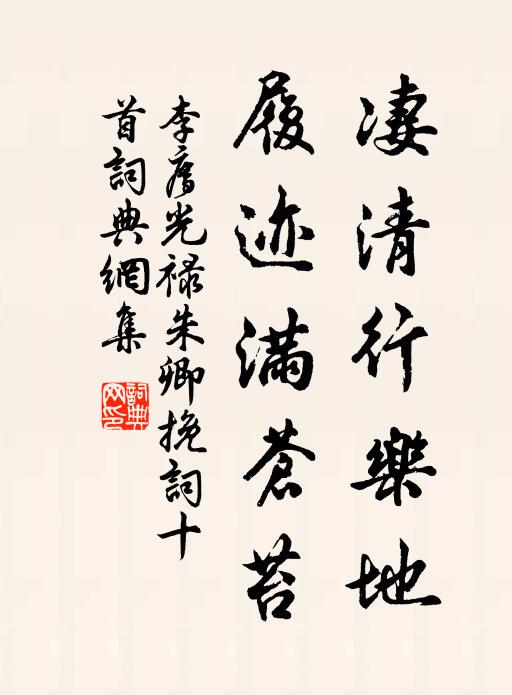 凄清行樂地
履迹滿蒼苔
李庿光祿朱卿挽詞十
首詞典網集
詞典
网印